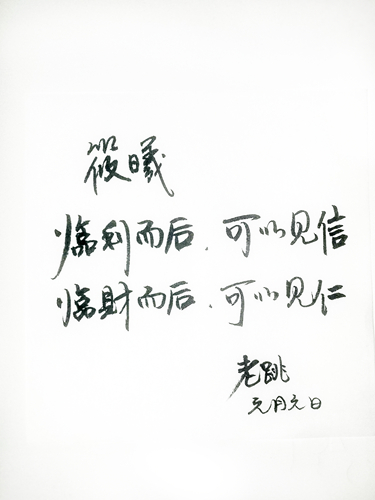 筱曦
临利而后，可以见信
临财而后，可以见仁
老跳
元月元日